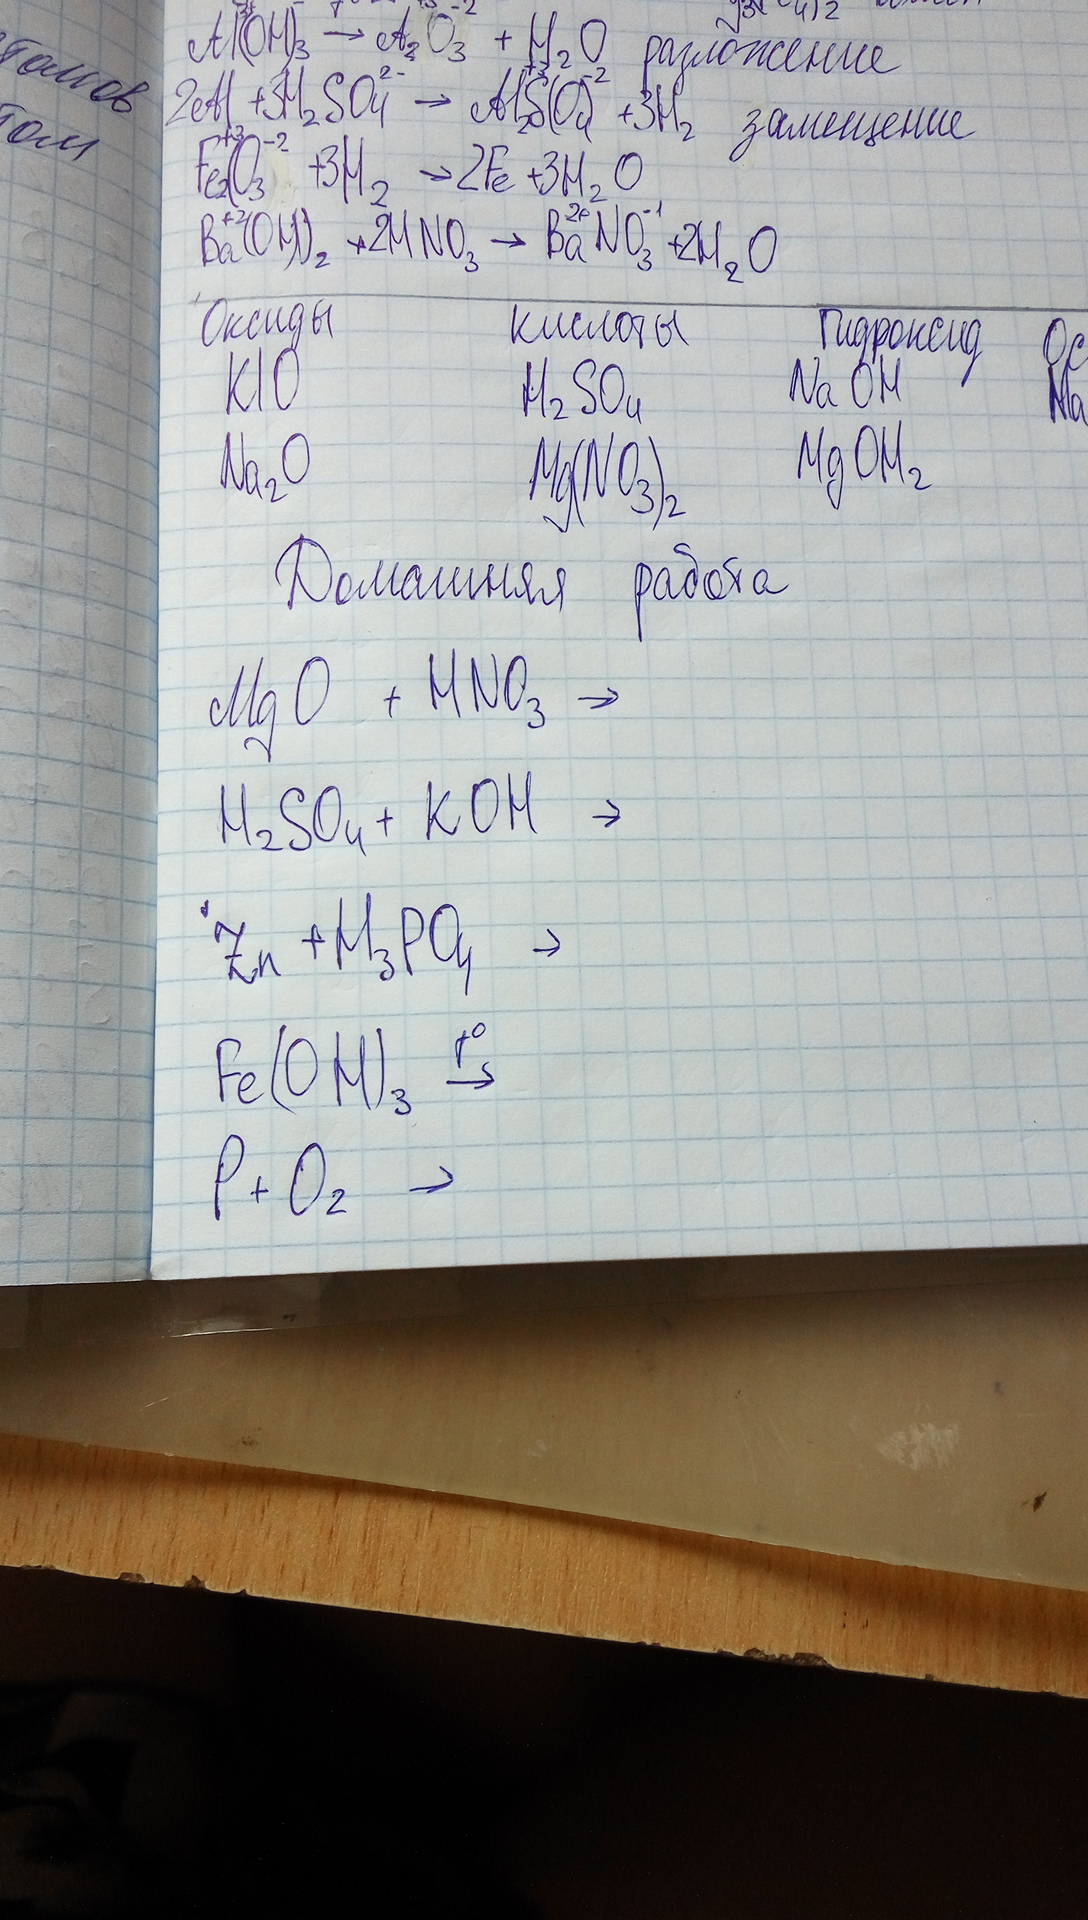 томов
том
Al(OH)₃ → Al₂O₃ + H₂O разложение
2Al + 3H₂SO₄²⁻ → Al₂(SO₄)⁻² + 3H₂ замещение
Fe₂⁺³O₃⁻² + 3H₂ → 2Fe + 3H₂O
Ba⁺²(OH)₂ + 2HNO₃ → Ba²⁺NO₃⁻¹ + 2H₂O
Оксиды кислоты Гидроксид Ос
KlO H₂SO₄ NaOH Na
Na₂O Mg(NO₃)₂ MgOH₂
Домашняя работа
MgO + HNO₃ →
H₂SO₄ + KOH →
Zn + H₃PO₄ →
Fe(OH)₃ t° →
P + O₂ →